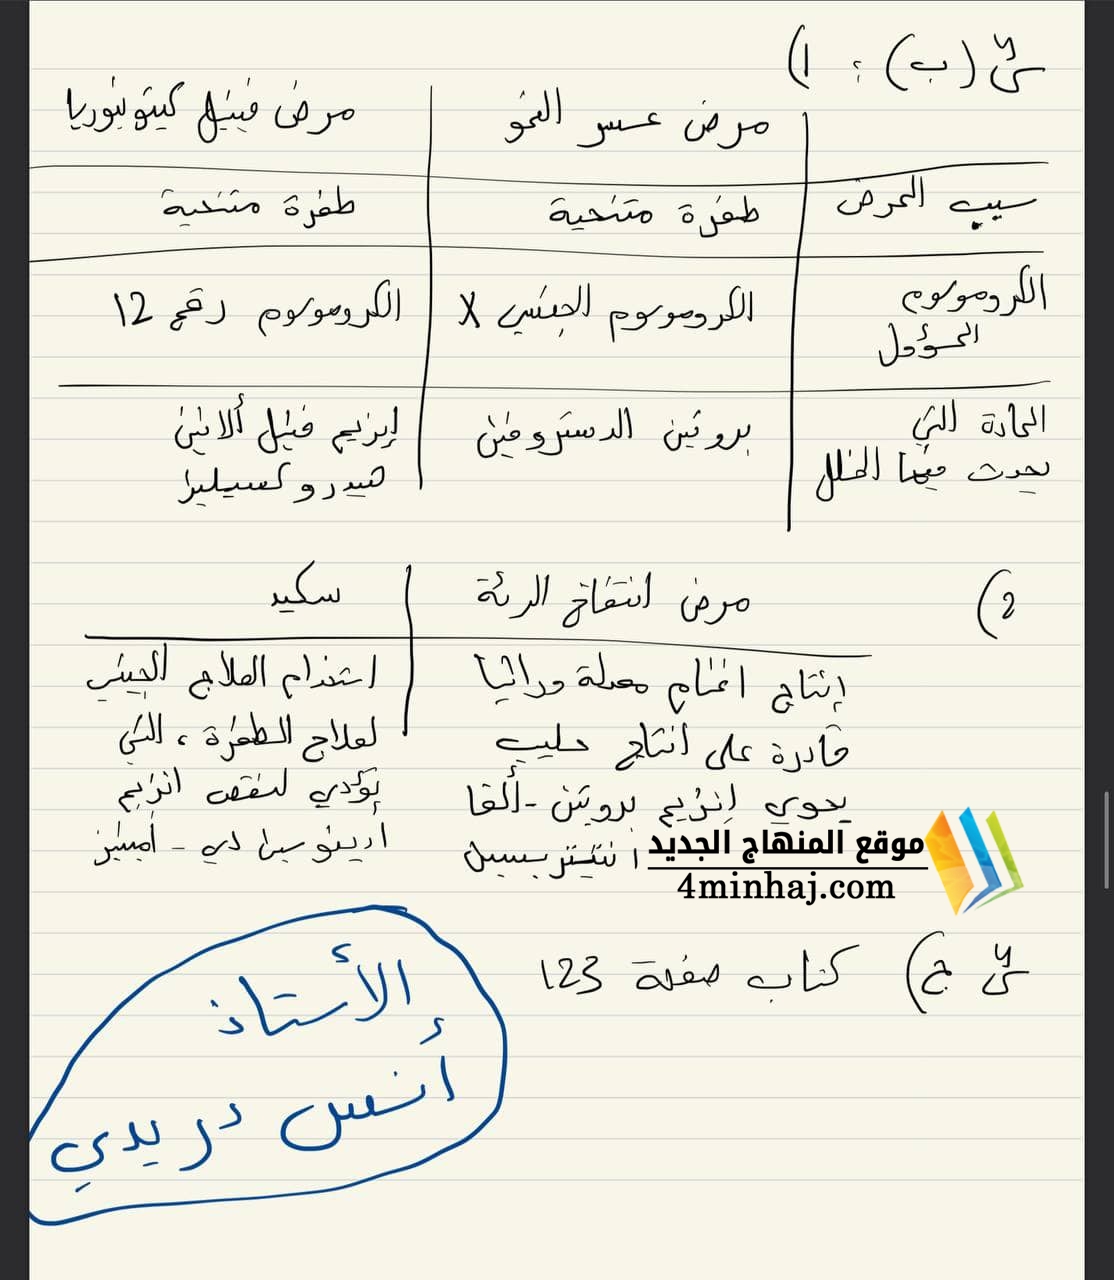 س٣ (ب) : 1)
مرض عسر النمو | مرض فينيل كيتونيوريا
سبب المرض | طفرة متنحية | طفرة متنحية
الكروموسوم المسؤول | الكروموسوم الجنسي X | الكروموسوم رقم 12
المادة التي يحدث فيها الخلل | بروتين الدستروفين | إنزيم فنيل ألانين هيدروكسيليز
2)
مرض انتفاخ الرئة | سكيد
إنتاج اغنام معدلة وراثيا | استخدام العلاج الجيني
قادرة على انتاج حليب | لعلاج الطفرة ، التي
يحوي إنزيم بروتين - ألفا | يؤدي لنقص انزيم
انتيتربسين | أدينوسين دي - أمينيز
موقع المنهاج الجديد
4minhaj.com
س٣ ج) كتاب صفحة 123
الأستاذ
أنس دريدي